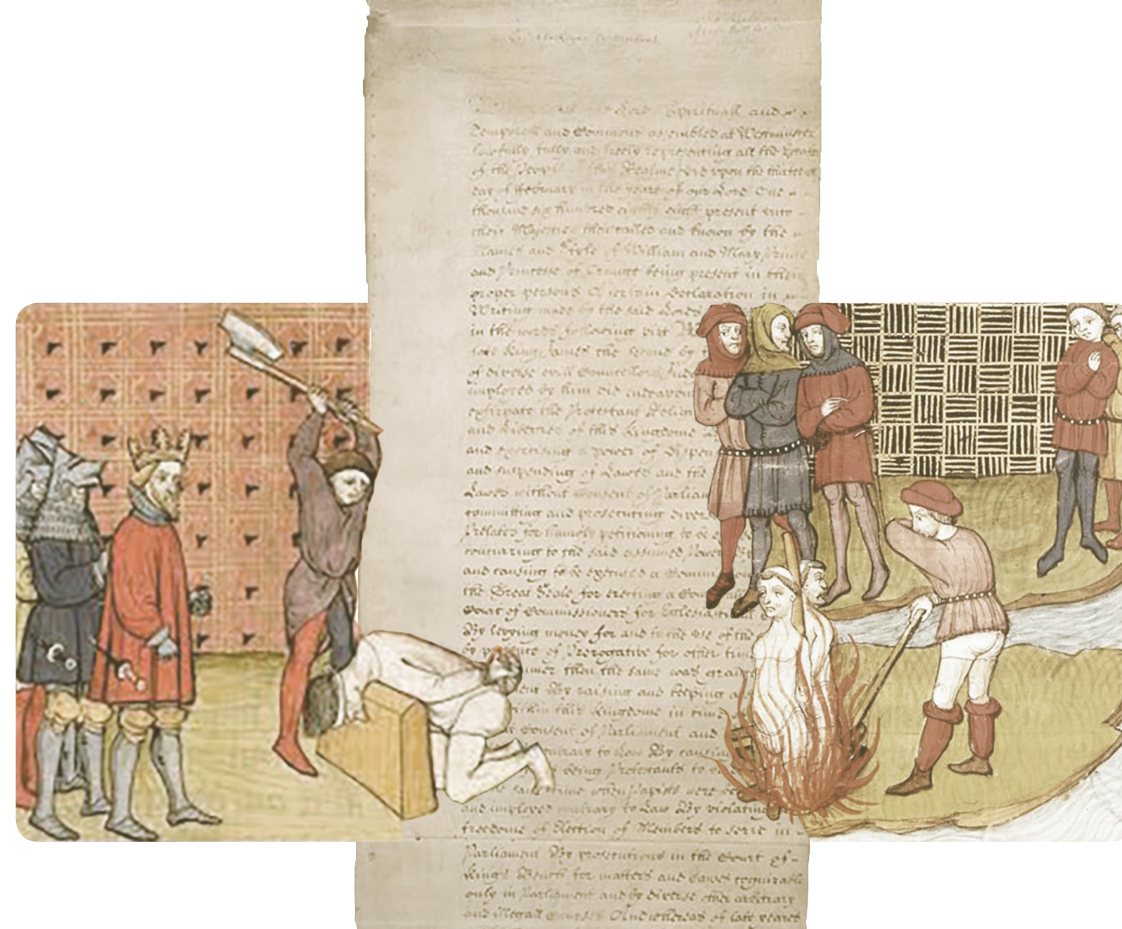 Lords Spirituall and
Temporall and Commons assembled at Westminster
lawfully fully and freely representing all the Estates
of the People of this Realme did upon the thirteenth
day of February in the yeare of our Lord One
thousand six hundred eighty eight present unto
their Majesties then called and known by the
Names and Style of William and Mary Prince
and Princesse of Orange being present in their
proper persons A certain Declaration in
Writing made by the said Lords
in the words following viz
late King James the Second by
of diverse evill Councellors Judges
imployed by him did endeavour
extirpate the Protestant Religion
and Liberties of this Kingdome
and exercising a power of Dispen
and suspending of Lawes and the
Lawes without consent of Parliam
committing and prosecuting divers
Prelates for humbly petitioning to be
concurring to the said assumed Power
and causing to be executed a Commi
the Great Seale for erecting a Cou
Court of Commissioners for Ecclesias
By levying money for and to the use of the
by of Prerogative for other time
then the same was grant
By raising and keeping a
this Kingdome in time
Consent of Parliament and
to Law By causing
being Protestants to
same time when Papists were
and imployed contrary to Law By violating
freedome of Election of Members to serve in
Parliament By prosecutions in the Court of
Kings Bench for matters and causes cognizable
only in Parliament and by diverse other arbitrary
and illegall courses And whereas of late yeares